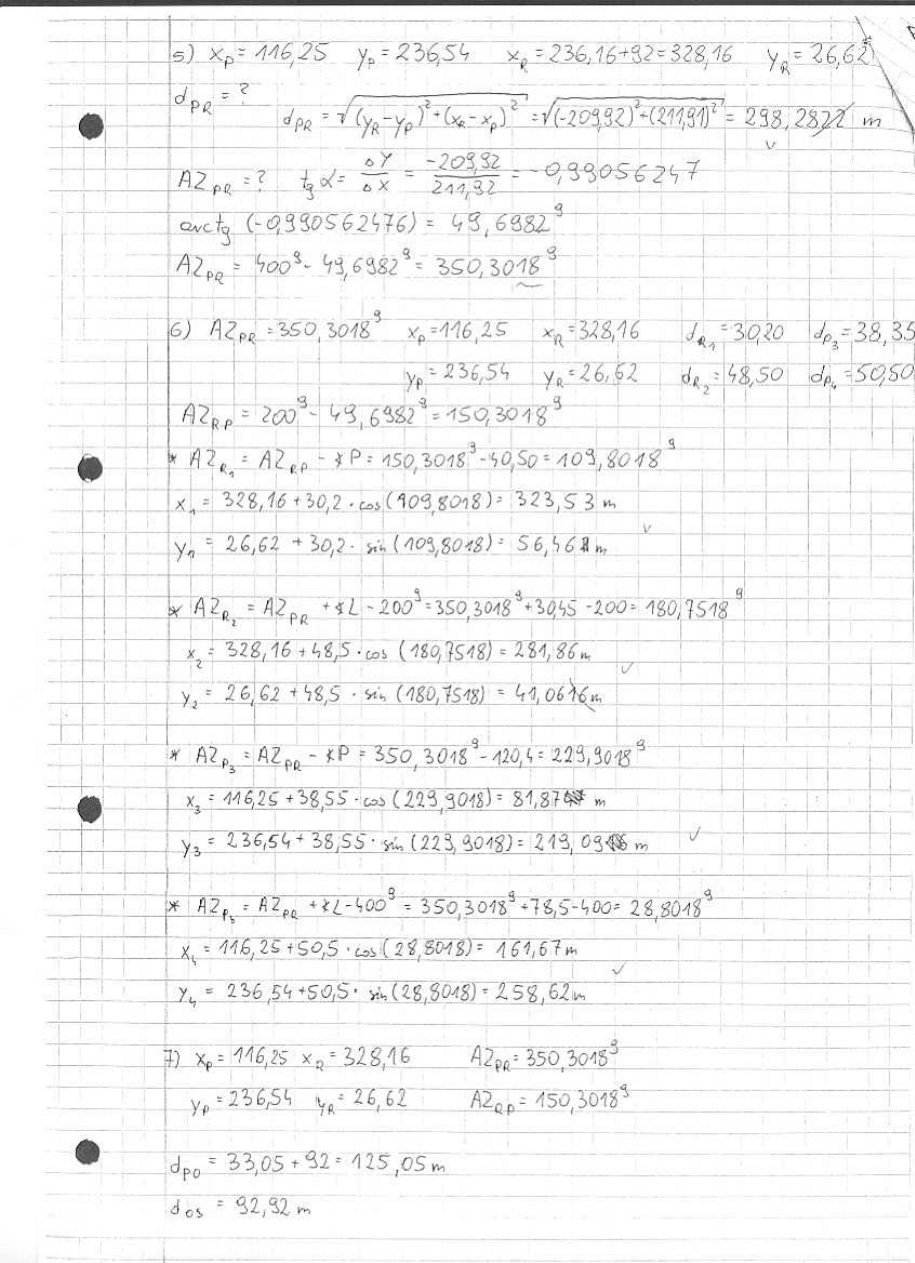 5) xP = 116,25 yP = 236,54 xR = 236,16+92 = 328,16 yR = 26,62
dPR = ?
dPR = √(yR-yP)²+(xR-xP)² = √(-209,92)²+(211,91)² = 298,2822 m
AZPR = ? tg α = ΔY/ΔX = -209,92/211,92 = -0,99056247
arctg (-0,990562476) = 49,6982ᵍ
AZPR = 400ᵍ - 49,6982ᵍ = 350,3018ᵍ
6) AZPR = 350,3018ᵍ xP = 116,25 xR = 328,16 dR1 = 30,20 dP3 = 38,35
yP = 236,54 yR = 26,62 dR2 = 48,50 dP4 = 50,50
AZRP = 200ᵍ - 49,6982ᵍ = 150,3018ᵍ
* AZR1 = AZRP - ∢P = 150,3018ᵍ - 40,50 = 109,8018ᵍ
x1 = 328,16 + 30,2 · cos (109,8018) = 323,53 m
y1 = 26,62 + 30,2 · sin (109,8018) = 56,46 m
* AZR2 = AZPR + ∢L - 200ᵍ = 350,3018ᵍ + 30,45 - 200 = 180,7518ᵍ
x2 = 328,16 + 48,5 · cos (180,7518) = 281,86 m
y2 = 26,62 + 48,5 · sin (180,7518) = 41,0616 m
* AZP3 = AZPR - ∢P = 350,3018ᵍ - 120,4 = 229,9018ᵍ
x3 = 116,25 + 38,55 · cos (229,9018) = 81,87 m
y3 = 236,54 + 38,55 · sin (229,9018) = 219,09 m
* AZP4 = AZPR + ∢L - 400ᵍ = 350,3018ᵍ + 78,5 - 400 = 28,8018ᵍ
x4 = 116,25 + 50,5 · cos (28,8018) = 161,67 m
y4 = 236,54 + 50,5 · sin (28,8018) = 258,62 m
7) xP = 116,25 xR = 328,16 AZPR = 350,3018ᵍ
yP = 236,54 yR = 26,62 AZRP = 150,3018ᵍ
dPO = 33,05 + 92 = 125,05 m
dOS = 92,92 m